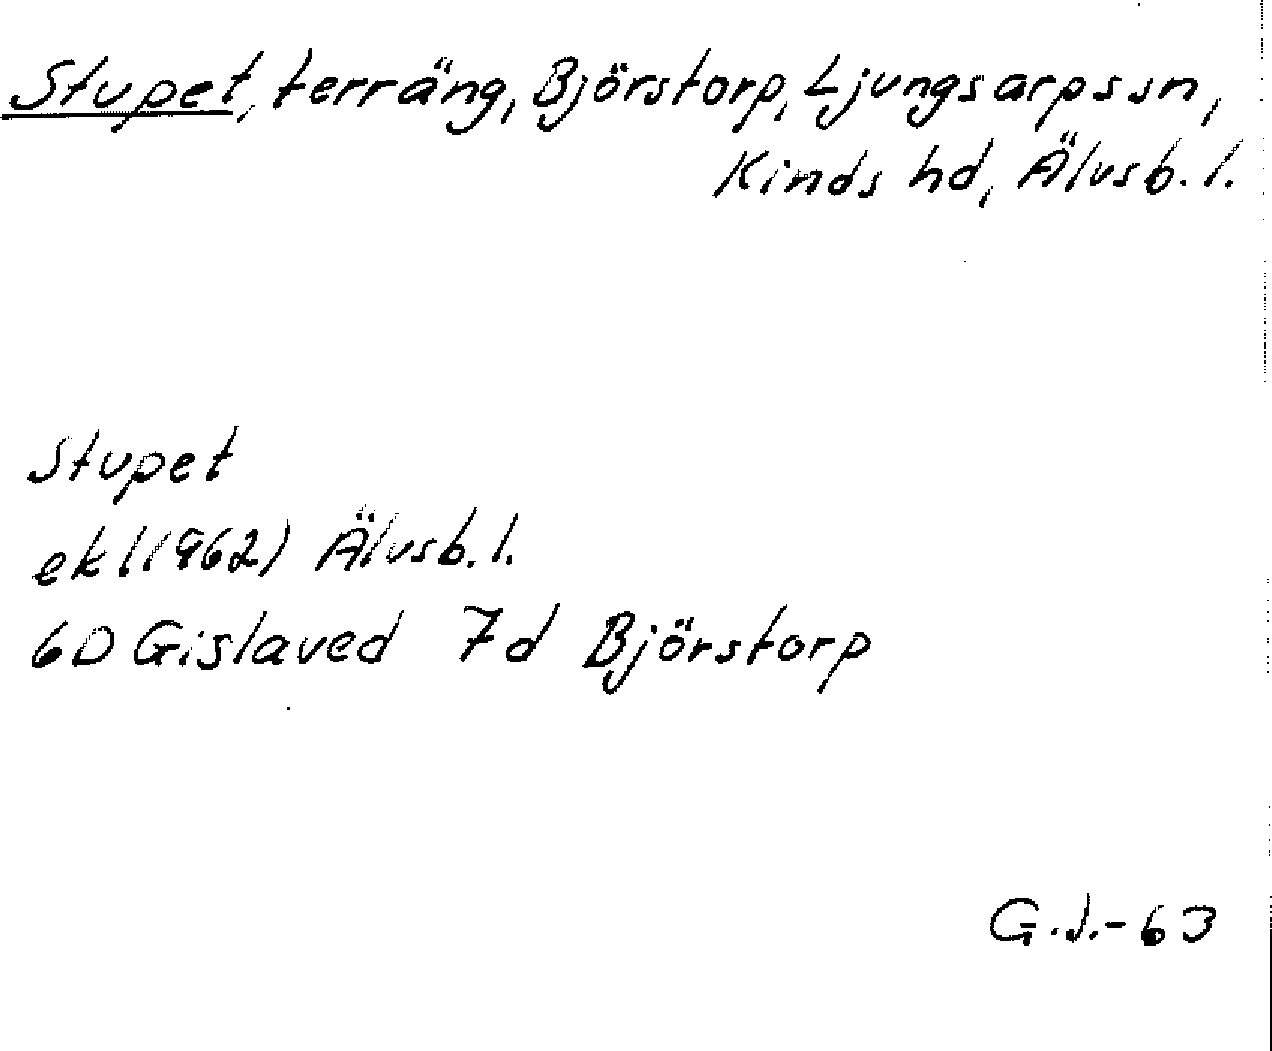 Stupet, terräng, Björstorp, Ljungsarps sn,
Kinds hd, Älvsb. l.
Stupet
ek (1962) Älvsb. l.
6D Gislaved 7d Björstorp
G.J.-63